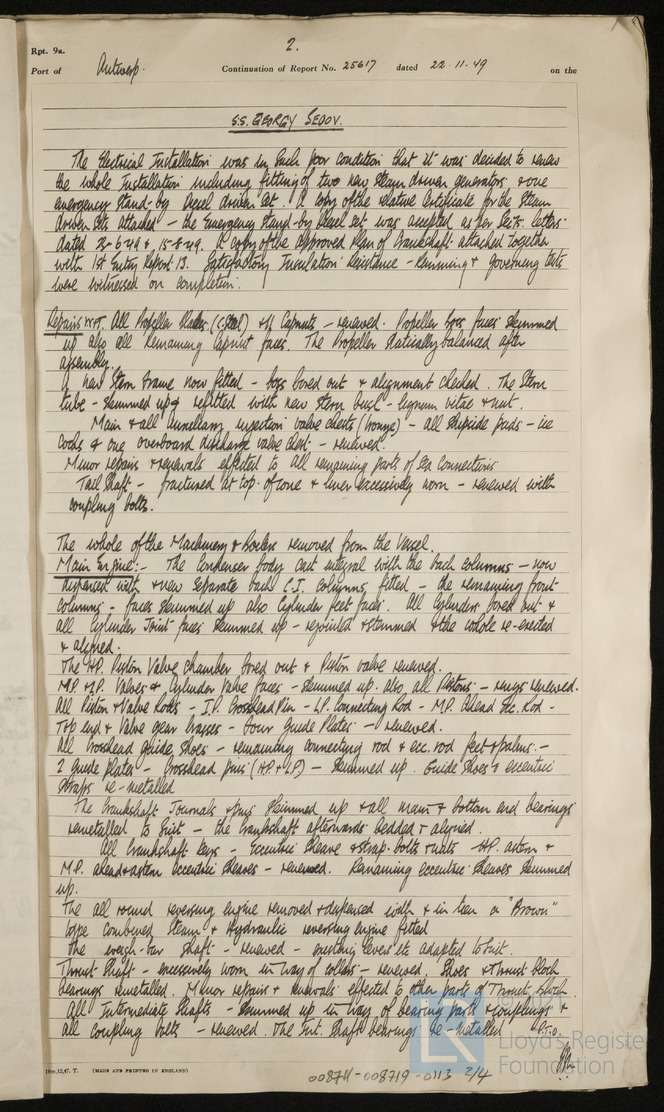 Rpt. 9a.
2.
Port of Antwerp. Continuation of Report No. 25617 dated 22-11-49 on the
S.S. GEORGY SEDOV.
The Electrical Installation was in such poor condition that it was decided to renew
the whole Installation including fitting of two new Steam driven generators & one
emergency Stand-by Diesel driven set. A copy of the relative Certificate for the Steam
driven sets attached – the Emergency Stand-by Diesel set was accepted as per letters
dated & 15-8-49. A copy of the approved Plan of Crankshaft attached together
with 1st Entry Report 13. Satisfactory Insulation resistance – Running & governing tests
were witnessed on completion.
Repairs W&T. All Propeller Blades. (C. Steel) & Capnuts – renewed. Propeller boss faces skimmed
up also all Remaining Capnut faces. The Propeller statically balanced after
assembly.
A new Stern Frame now fitted – boss bored out & alignment checked. The Stern
tube – skimmed up & refitted with new Stern bush – lignum vitae & nut.
Main & all auxiliary injection valve chests (bronze) – all shipside pads – ice
cocks & one overboard discharge valve chest – renewed.
Minor repairs & renewals effected to all remaining parts of Sea Connections
Tail Shaft – fractured at top of cone & liner excessively worn – renewed with
coupling bolts.
The whole of the Machinery & Boilers removed from the Vessel.
Main Engine:- The Condenser body cast integral with the back columns – now
dispensed with & new separate back C.I. columns fitted – the remaining front
columns – faces skimmed up also Cylinder feet faces. All Cylinders bored out &
all Cylinder Joint faces skimmed up – rejointed & the whole re-erected
& aligned.
The H.P. Piston Valve chamber bored out & Piston valve renewed.
M.P. & L.P. Valves & Cylinder Valve faces – skimmed up. also all Pistons – rings renewed.
All Piston & Valve Rods – I.P. Crosshead Pin – L.P. Connecting Rod – M.P. Ahead Ecc. Rod –
Top end & Valve gear brasses – four Guide Plates – renewed.
All Crosshead guide Shoes – remaining connecting rod & ecc. rod feet & palms –
2 Guide plates – Crosshead pins (H.P. & L.P.) – skimmed up. Guide Shoes & eccentric
straps re-metalled
The Crankshaft Journals & pins skimmed up & all main & bottom end bearings
remetalled to suit – the Crankshaft afterwards bedded & aligned.
All Crankshaft keys – Eccentric Sheave & strap bolts & nuts – H.P. astern &
M.P. ahead & astern eccentric sheaves – renewed. Remaining eccentric sheaves skimmed
up.
The all round reversing engine removed & dispensed with & in lieu a "Brown"
type combined Steam & Hydraulic reversing engine fitted
The weigh-bar shaft – renewed – existing levers etc adapted to suit.
Thrust Shaft – excessively worn in way of collars – renewed. Shoes & Thrust block
bearings remetalled. Minor repairs & renewals effected to other parts of Thrust block.
All Intermediate Shafts – skimmed up in way of bearing parts & couplings &
all coupling bolts – renewed. The Int. Shaft bearings re-metalled P.T.O.
(MADE AND PRINTED IN ENGLAND)
008711-008719-0113 2/4
LR
© 2021
Lloyd's Register
Foundation